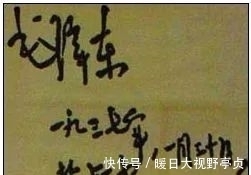 毛泽东
一九三七年,一月三十日
快传号/暖日大视野亭贞